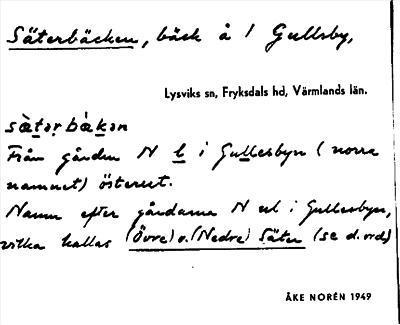 Säterbäcken, bäck å 1 Gullsby,
Lysviks sn, Fryksdals hd, Värmlands län.
sὰtər bὰkən
Från gården N l i Gullesbyn (norra
namnet) österut.
Namn efter gårdarna N ul i Gullesbyn,
vilka kallas (Övre) o. (Nedre) Säter (se d. ord)
ÅKE NORÉN 1949